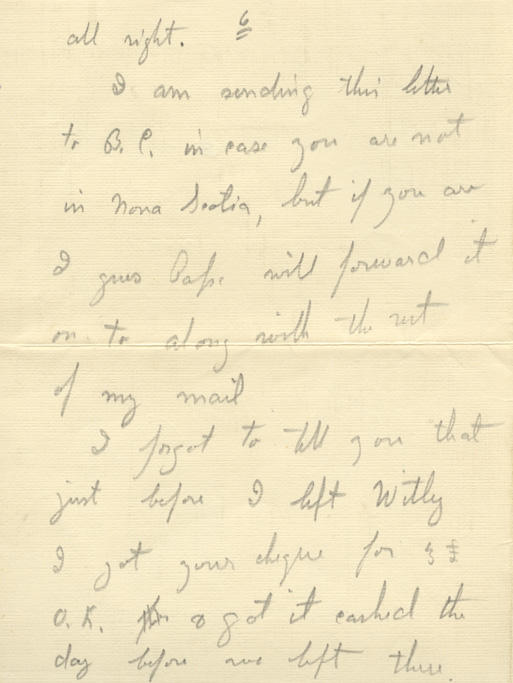 6
all right.
I am sending this letter
to B.C. in case you are not
in Nova Scotia, but if you are
I guess Pape will forward it
on to along with the rest
of my mail
I forgot to tell you that
just before I left Witly
I got your cheque for 3 £
O.K. & got it cashed the
day before we left there.